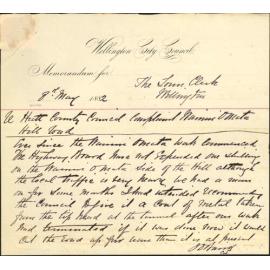 Wellington City Council,
Memorandum for
The Town Clerk
Wellington
8th May 1882
Re Hutt County Council Complaint Wainui O Mata
Hill Road
Ever since the Wainui O Mata Work Commenced
The Highway Board have not expended one shilling
on the Wainui O Mata Side of the Hill although
the local traffic is very heavy we had a man
on for some Months I had intended recommending
the Council to give it a Coat of Metal taken
from the top Road at the tunnel after our work
had terminated if it was done now it would
Cut the Road up far worse than it is at present